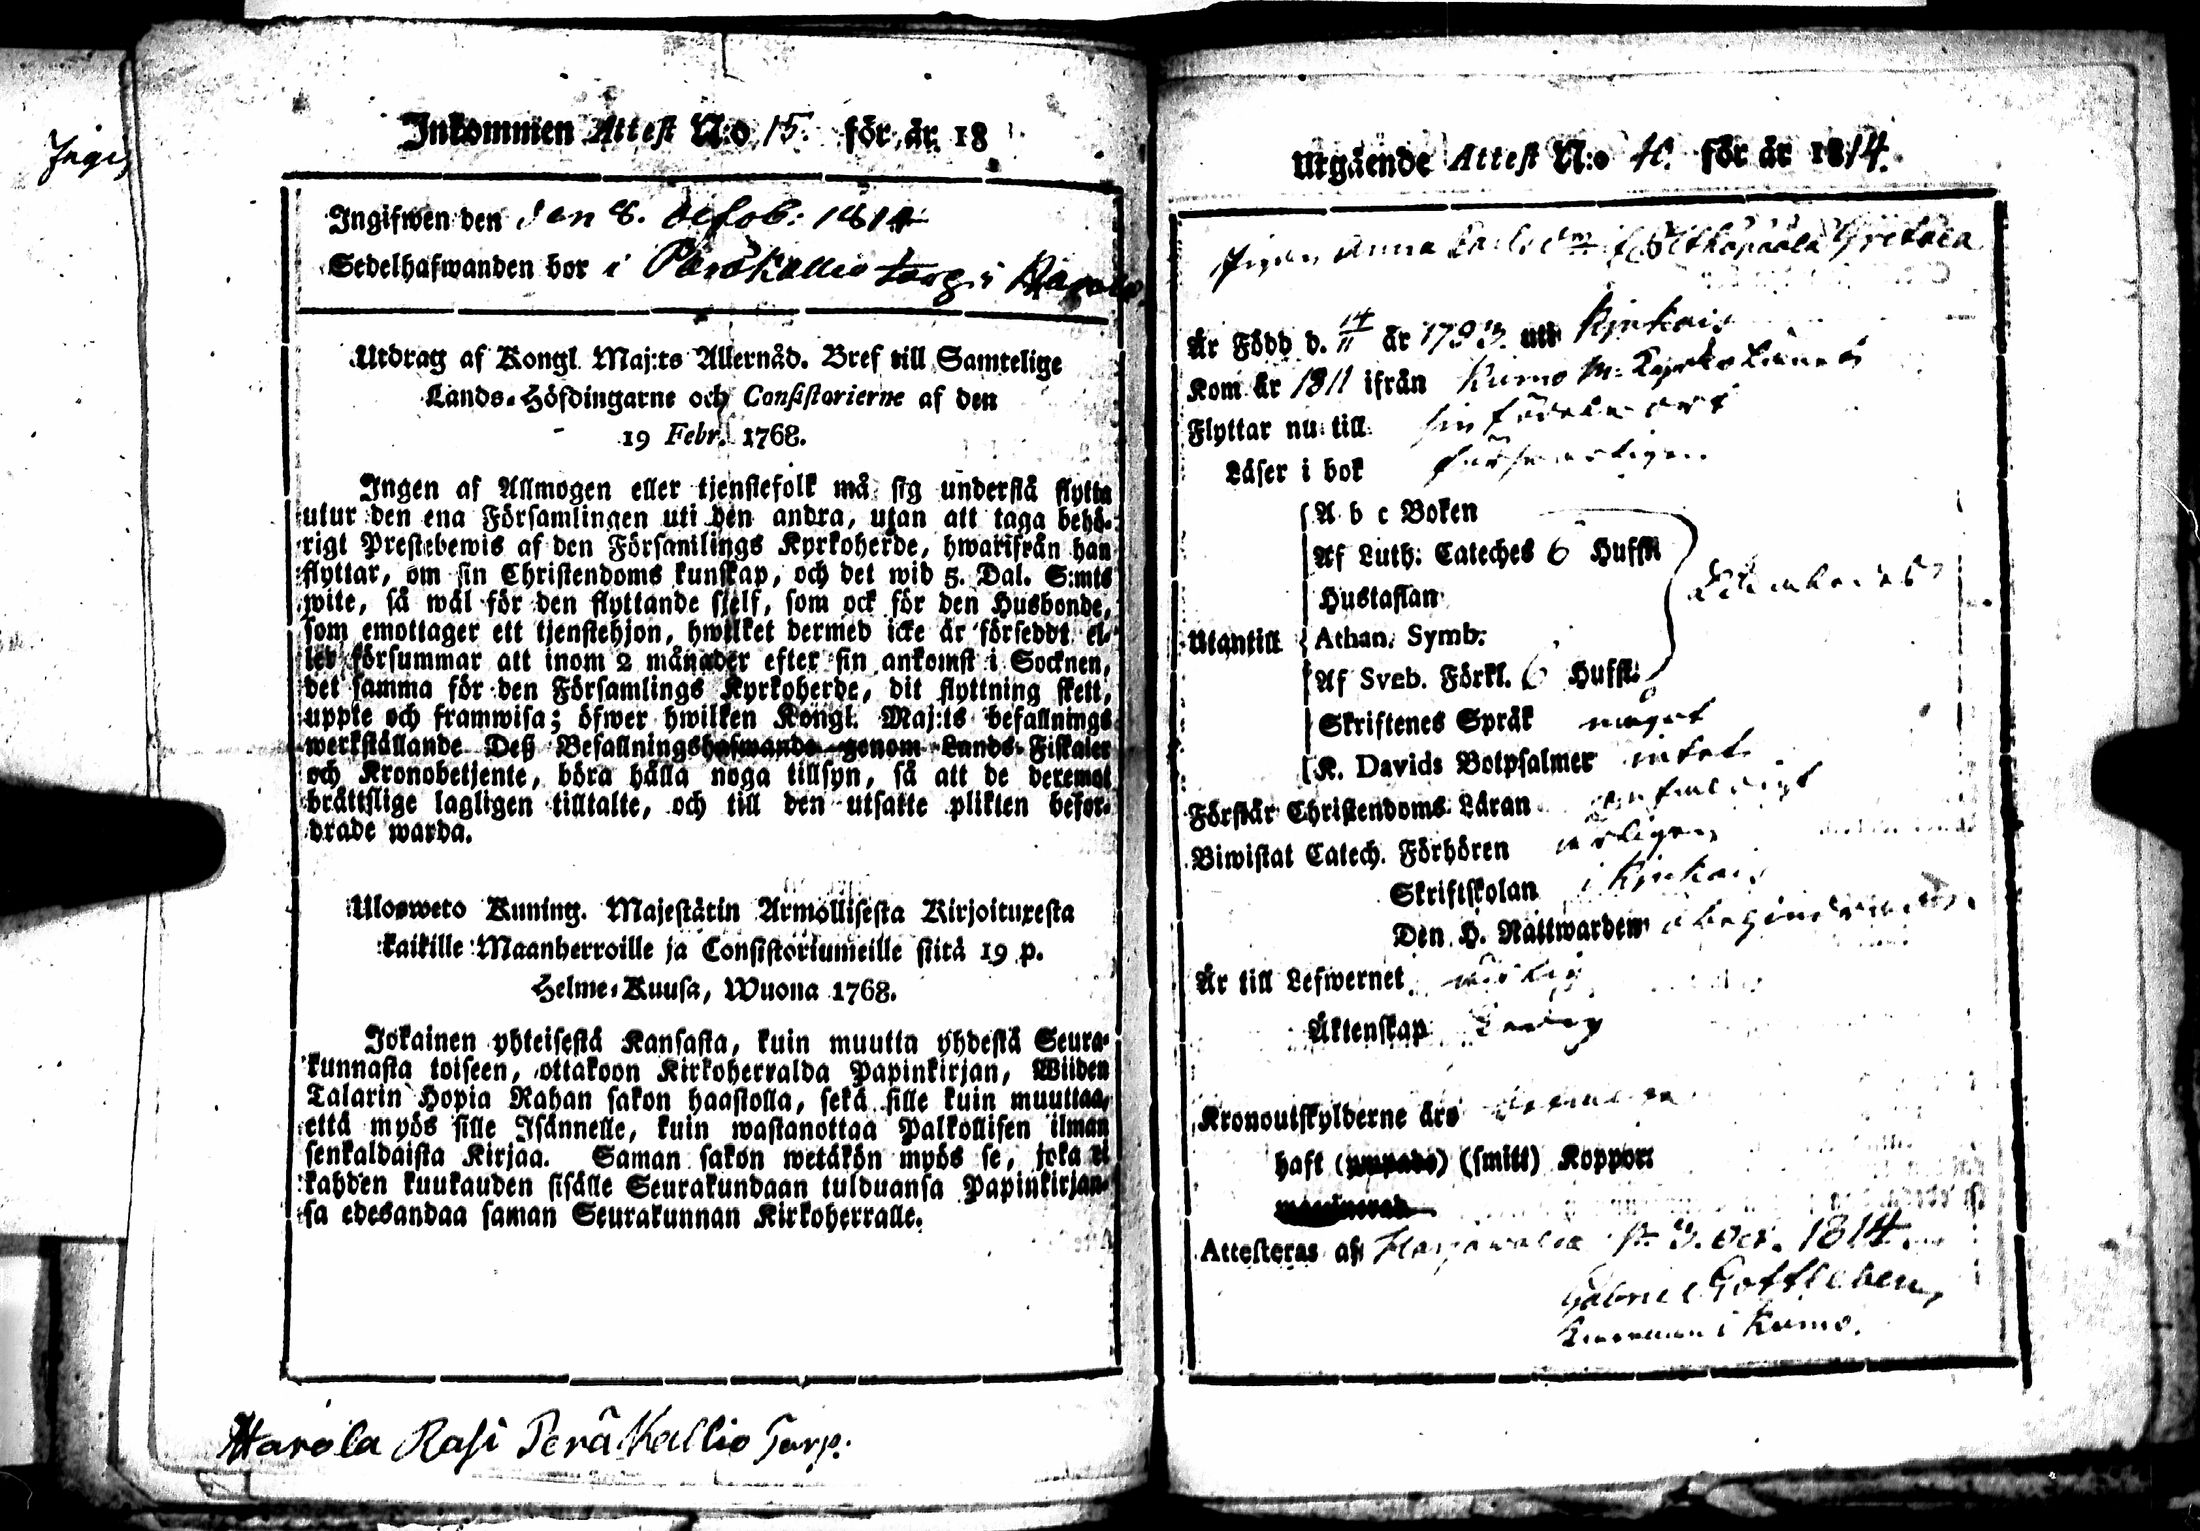 Inkommen Attest N:o 15. för år 18
Ingifwen den den 8. Octob: 1814
Sedelhafwanden bor i Peräkallio torp i
Utdrag af Kongl. Maj:ts Allernåd. Bref till Samtelige
Lands-Höfdingarne och Consistorierne af den
19 Febr. 1768.
Ingen af Allmogen eller tjenstefolk må sig understå flytta
utur den ena Församlingen uti den andra, utan att taga behö-
rigt Prestebewis af den Församlings Kyrkoherde, hwarifrån han
flyttar, om sin Christendoms kunskap, och det wid 5. Dal. S:mts
wite, så wäl för den flyttande sjelf, som ock för den Husbonde,
som emottager ett tjenstehjon, hwilket dermed icke är förseddt el-
ler försummar att inom 2 månader efter sin ankomst i Socknen,
det samma för den Församlings Kyrkoherde, dit flyttning skett,
uppte och framwisa; öfwer hwilken Kongl. Maj:ts befallnings
werkställande Deß Befallningshafwande genom Lands-Fiskaler
och Kronobetjente, böra hålla noga tillsyn, så att de deremot
bråttslige lagligen tilltalte, och till den utsatte plikten befor-
drade warda.
Ulosweto Kuning. Majestätin Armollisesta Kirjoituxesta
kaikille Maanherroille ja Consistoriumeille siitä 19 p.
Helme-Kuusa, Wuona 1768.
Jokainen yhteisestä Kansasta, kuin muutta yhdestä Seura-
kunnasta toiseen, ottakoon Kirkoherralda Papinkirjan, Wiiden
Talarin Hopia Rahan sakon haastolla, sekä sille kuin muuttaa,
että myös sille Isännelle, kuin wastanottaa Palkollisen ilman
senkaldaista Kirjaa. Saman sakon wetäkön myös se, joka ei
kahden kuukauden sisälle Seurakundaan tulduansa Papinkirjan-
sa edesandaa saman Seurakunnan Kirkoherralle.
Harola Rasi Peräkallio Torp.
Utgående Attest N:o för år 1814.
Pigan Anna
Är Född d. 14/11 år 1793. uti Kjukais
Kom år 1811 ifrån Kumo
Flyttar nu till sin födelse ort
Läser i bok försvarligen
A b c Boken
Af Luth: Cateches 6 Hufst.
Hustaflan
Utantill Athan. Symb.
Af Sveb. Förkl. 6 Hufst.
Skriftenes Språk något
K. Davids Botpsalmer intet
Förstår Christendoms Läran enfaldigt
Biwistat Catech. Förhören årligen
Skriftskolan i Kjukais
Den H. Nattwarden
Är till Lefwernet
Äktenskap Ledig
Kronoutskylderne äro
haft (smitt) Koppor:
Attesteras af Harjawalda 3. Oct. 1814.
Gabriel Gottleben,
i Kumo.